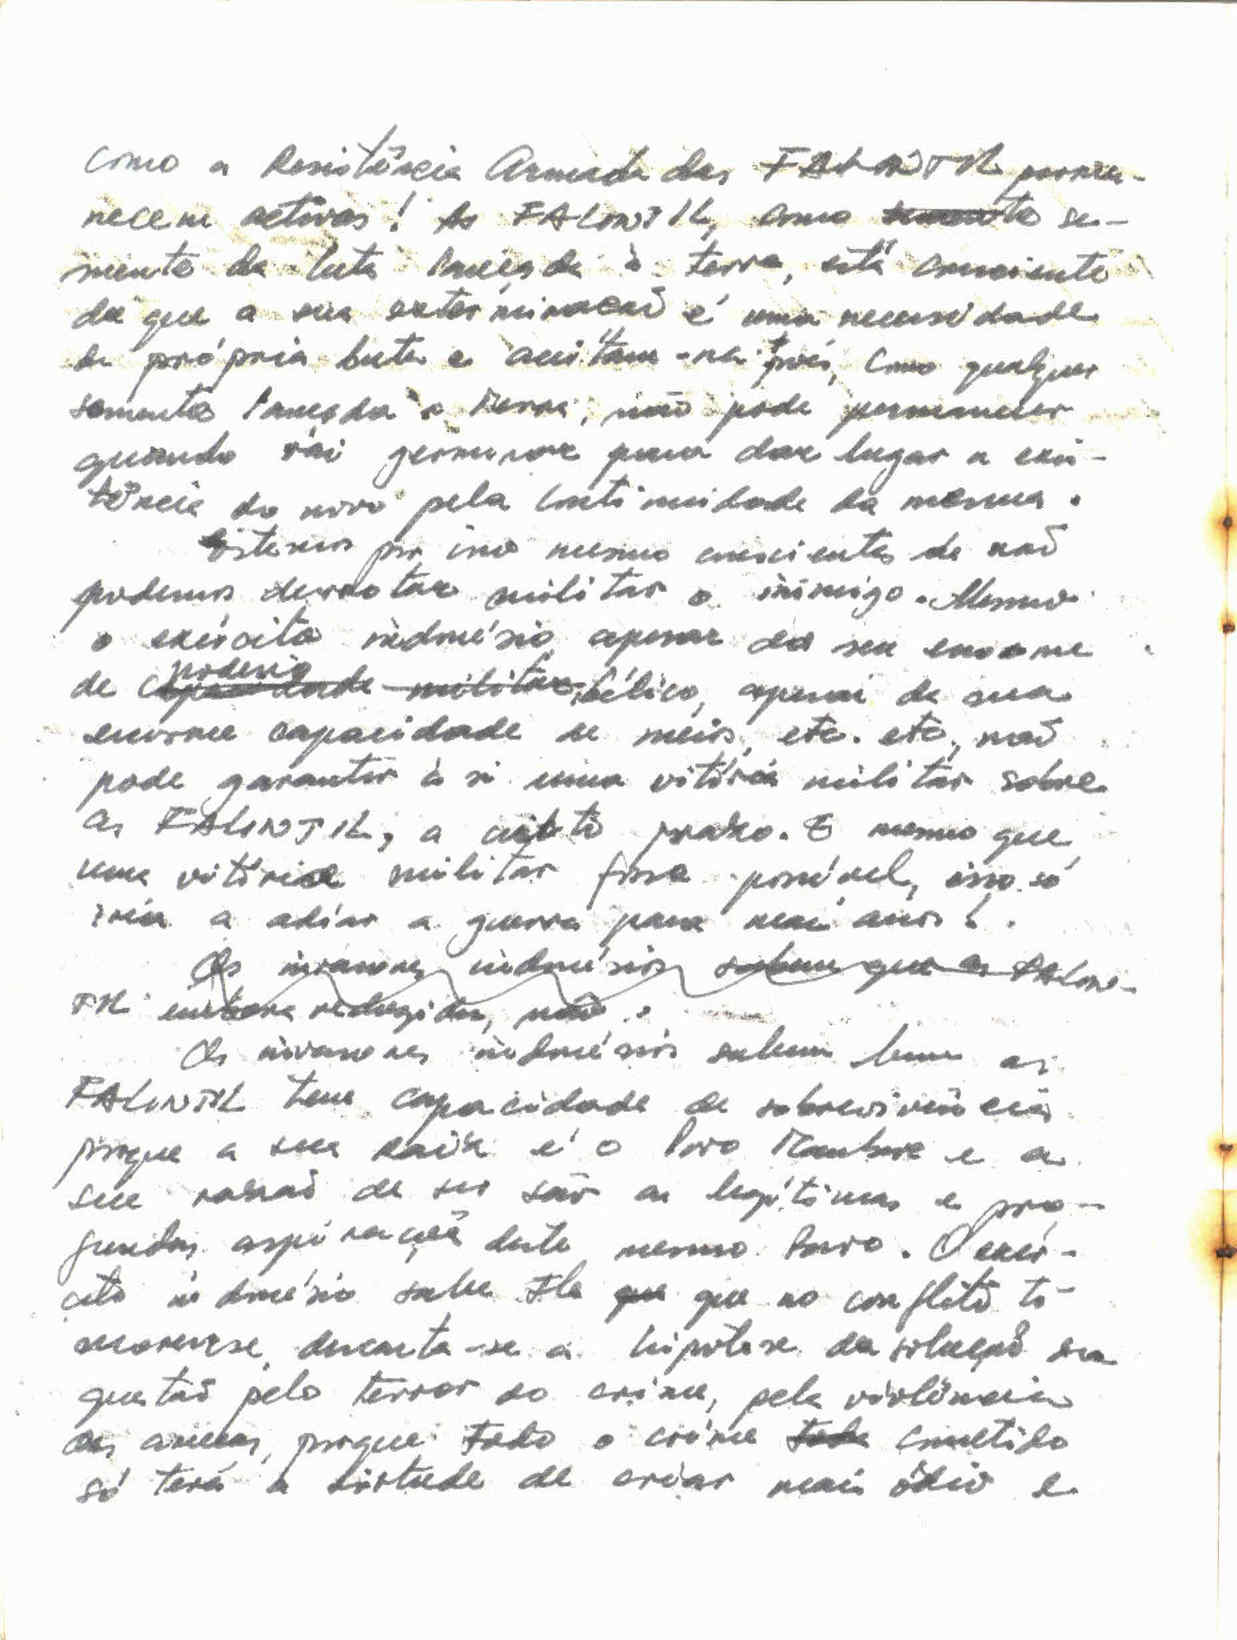 como a Resistência Armada das FALINTIL perma-
necem activas! As FALINTIL, como se-
mente da luta lançada à terra, está consciente
de que a sua exterminação é uma necessidade
da própria luta e aceitam-na pois, como qualquer
semente lançada à terra, não pode permanecer
quando vai germinar para dar lugar a exis-
tência do novo pela continuidade da mesma.
Estamos por isso mesmo conscientes de não
podemos derrotar militar o inimigo. Mesmo
o exército indonésio apesar do seu enorme
de capacidade militar poderio bélico, apesar de sua
enorme capacidade de meios, etc. etc, não
pode garantir à si uma vitória militar sobre
as FALINTIL, a curto prazo. E mesmo que
uma vitória militar fosse possível, isso só
iria a adiar a guerra para mais anos!.
Os invasores indonésios sabem que as FALIN-
TIL embora reduzidas, não.
Os invasores indonésios sabem bem as
FALINTIL tem capacidade de sobrevivência
porque a sua raiz é o Povo Maubere e a
sua razão de ser são as legítimas e pro-
fundas aspirações deste mesmo Povo. O exér-
cito indonésio sabe que que no conflito ti-
morense, descarta-se a hipótese da solução da
questão pelo terror do crime, pela violência
das armas, porque todo o crime todo cometido
só terá a virtude de criar mais ódio e